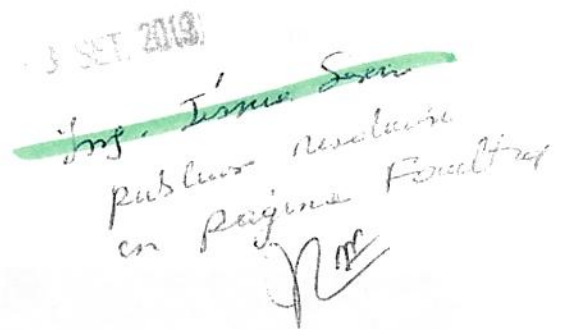 3 SET. 2019
Ing.
publicar resolución
en página Facultad